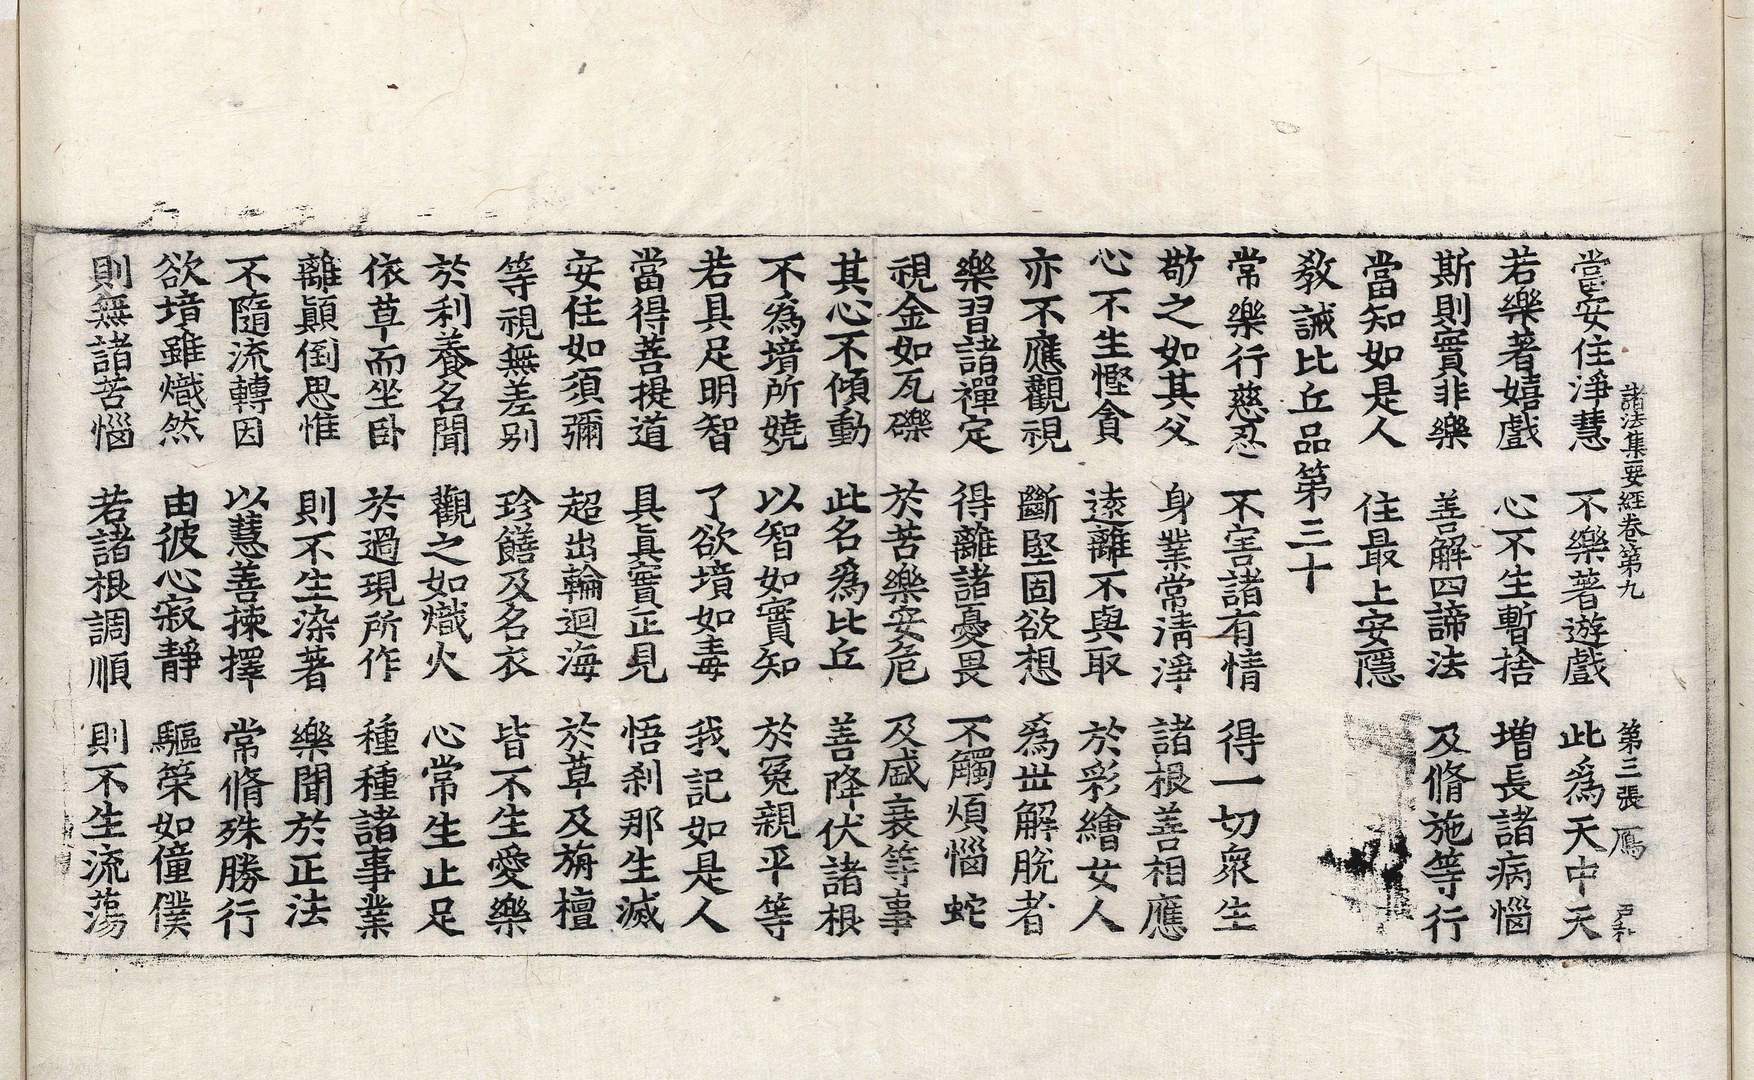 諸法集要經卷第九 第三張 鴈
當安住淨慧 不樂著遊戲 此爲天中天
若樂著嬉戲 心不生暫捨 增長諸病惱
斯則實非樂 善解四諦法 及脩施等行
當知如是人 住最上安隱
教誡比丘品第三十
常樂行慈忍 不害諸有情 得一切衆生
敬之如其父 身業常清淨 諸根善相應
心不生慳貪 遠離不與取 於彩繪女人
亦不應觀視 斷堅固欲想 爲世解脫者
樂習諸禪定 得離諸憂畏 不觸煩惱蛇
視金如瓦礫 於苦樂安危 及盛衰等事
其心不傾動 此名爲比丘 善降伏諸根
不爲境所嬈 以智如實知 於冤親平等
若具足明智 了欲境如毒 我記如是人
當得菩提道 具眞實正見 悟刹那生滅
安住如須彌 超出輪迴海 於草及旃檀
等視無差別 珍饍及名衣 皆不生愛樂
於利養名聞 觀之如熾火 心常生止足
依草而坐臥 於過現所作 種種諸事業
離顚倒思惟 則不生染著 樂聞於正法
不隨流轉因 以慧善揀擇 常脩殊勝行
欲境雖熾然 由彼心寂靜 驅策如僮僕
則無諸苦惱 若諸根調順 則不生流蕩